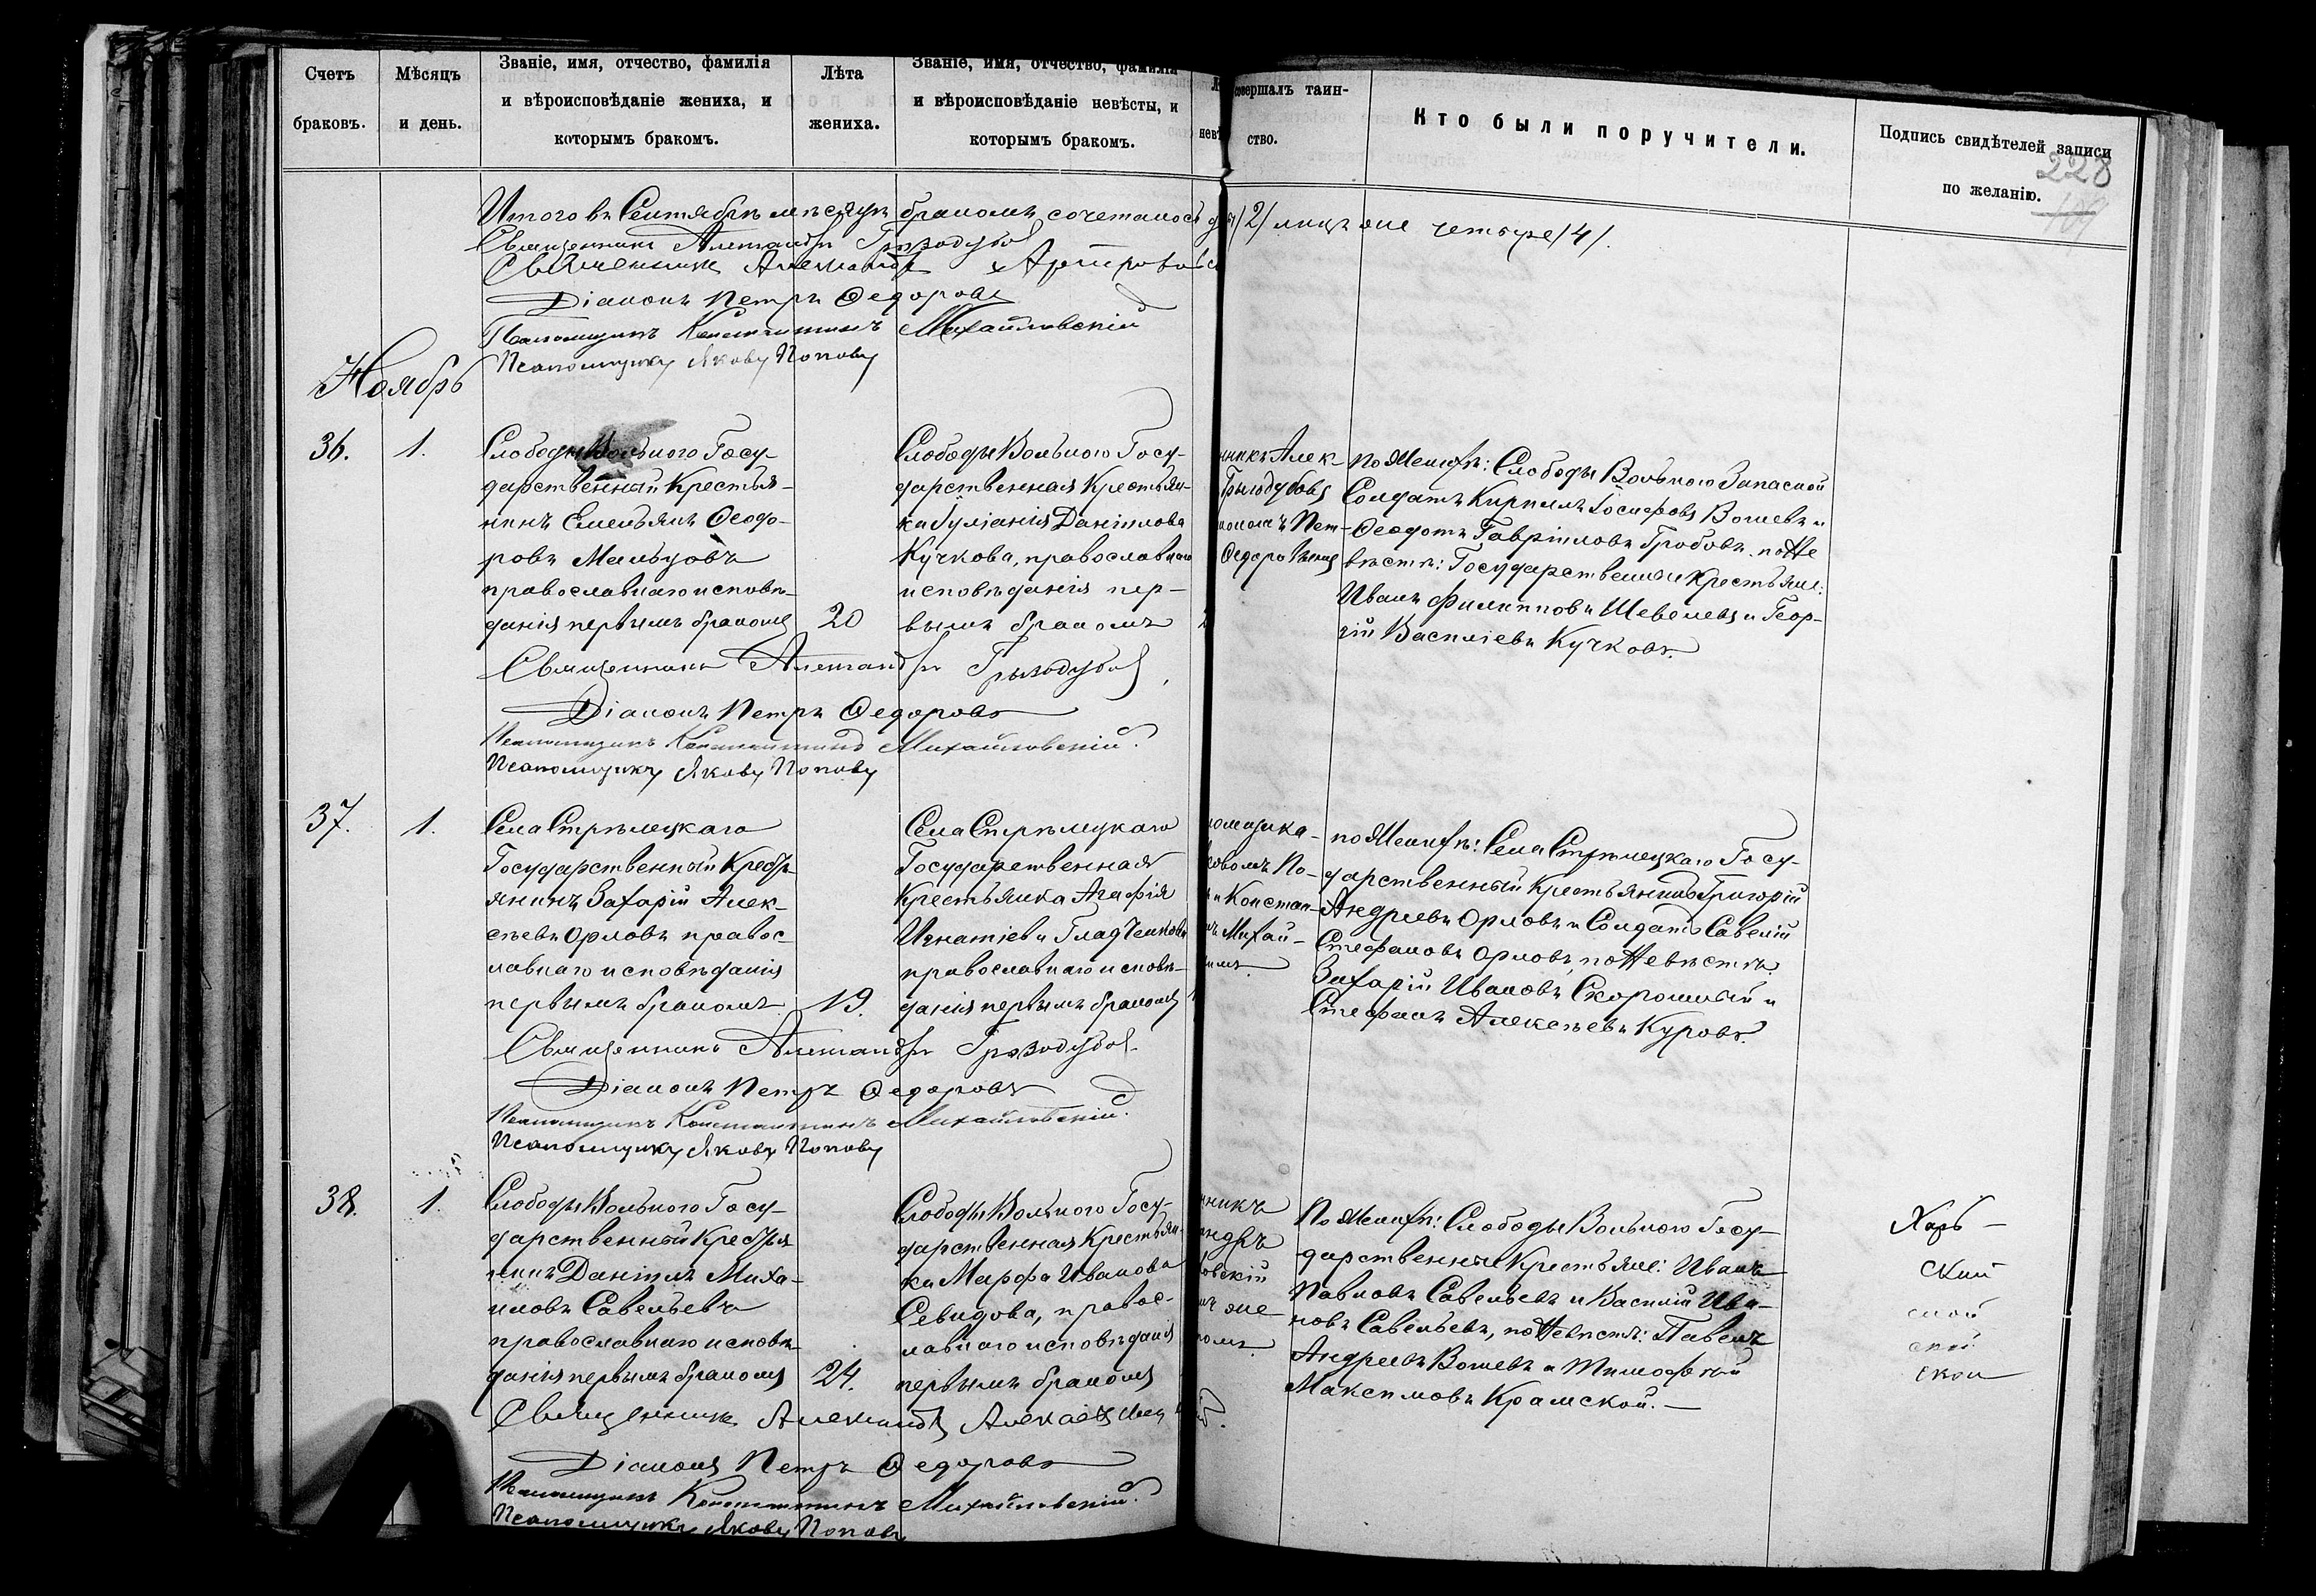 Счетъ
браковъ.
Мѣсяцъ
и день.
Званіе, имя, отчество, фамилія
и вѣроисповѣданіе жениха, и
которымъ бракомъ.
Лѣта
жениха.
Званіе, имя, отчество, фамилія
и вѣроисповѣданіе невѣсты, и
которымъ бракомъ.
совершалъ таин-
ство.
Кто были поручители.
Подпись свидѣтелей записи
по желанію.
228
Итого въ Сентябрѣ мѣсяцѣ бракомъ сочеталось /2/ лицъ четыре /4/.
Священникъ Александръ
Священникъ Александръ
Діаконъ Петръ Ѳедоровъ
Псаломщикъ Константинъ Михайловскій
Псаломщикъ Яковъ Поповъ
Ноябрь
36.
1.
Слободы Вольного Госу-
дарственный Крестья-
нинъ Емельянъ Ѳеодо-
ровъ Мальцовъ
православнаго исповѣ-
данія первымъ бракомъ
20
Слободы Вольного Госу-
дарственная Крестьян-
ка Іуліанія Даніилова
Кучкова, православнаго
исповѣданія пер-
вымъ бракомъ
никъ Алек-
Грызодубовъ
кономъ Пет-
Ѳедоровымъ
по Женихѣ: Слободы Вольного Запасной
Солдатъ Кириллъ Іосифовъ Вошевъ и
Ѳеодотъ Гавріиловъ Гробовъ. по Не-
вѣстѣ: Государственные Крестьяне:
Иванъ Филипповъ Шевелевъ и Геор-
гій Василіевъ Кучковъ.
Священникъ Александръ Грызодубовъ
Діаконъ Петръ Ѳедоровъ
Псаломщикъ Константинъ Михайловскій.
Псаломщикъ Яковъ Поповъ
37.
1.
Села Стрѣлецкаго
Государственный Кресть-
янинъ Захарій Алек-
сѣевъ Орловъ правос-
лавнаго исповѣданія
первымъ бракомъ
19.
Села Стрѣлецкаго
Государственная
Крестьянка Агафія
Игнатіева
православнаго исповѣ-
данія первымъ бракомъ
ломщика-
ковомъ По-
и Констан-
Михай-
по Женихѣ: Села Стрѣлецкаго Госу-
дарственный Крестьянинъ Григорій
Андреевъ Орловъ и Солдатъ Савелій
Стефановъ Орловъ, по Невѣстѣ:
Захарій Ивановъ и
Стефанъ Алексѣевъ Куровъ.
Священникъ Александръ Грызодубовъ
Діаконъ Петръ Ѳедоровъ
Псаломщикъ Константинъ Михайловскій.
Псаломщикъ Яковъ Поповъ
38.
1.
Слободы Вольного Госу-
дарственный Крестья-
нинъ Даніилъ Миха-
иловъ Савельевъ
православнаго исповѣ-
данія первымъ бракомъ
24.
Слободы Вольного Госу-
дарственная Крестьян-
ка Марфа Иванова
Севидова, правос-
лавнаго исповѣданія
первымъ бракомъ
никъ
андръ
овскій
По Женихѣ: Слободы Вольного Госу-
дарственные Крестьяне: Иванъ
Павловъ Савельевъ и Василій Ива-
новъ Савельевъ, по Невѣстѣ: Павелъ
Андреевъ Вошевъ и Тимофей
Максимовъ Крамской.
Харь-
ский
ской
ской
ской
Священникъ Александръ
Діаконъ Петръ Ѳедоровъ
Псаломщикъ Константинъ Михайловскій.
Псаломщикъ Яковъ Поповъ